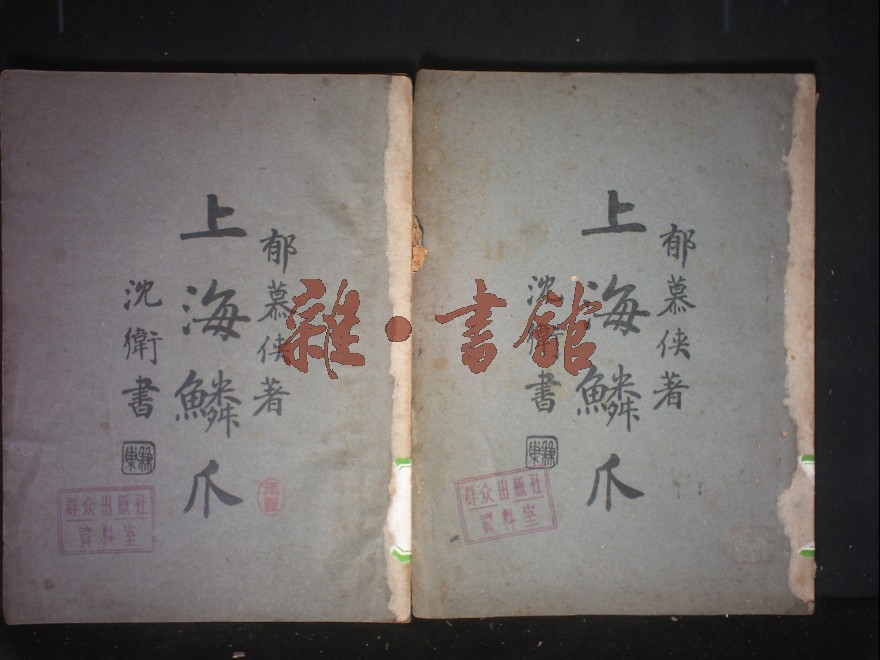 郁慕侠著
上海鳞爪
沈衛書
群众出版社
資料室
郁慕侠著
上海鳞爪
沈衛書
群众出版社
資料室
雜·書館